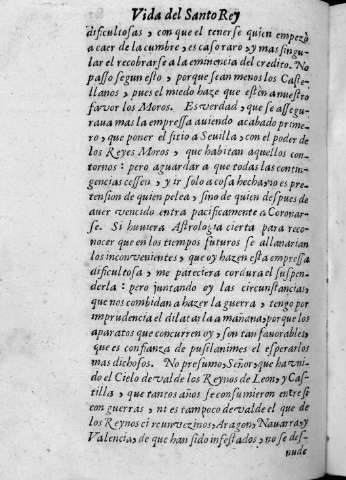 Vida del Santo Rey
dificultosas, con que el tenerse quien empezò
a caer de la cumbre, es caso raro, y mas singu-
lar el recobrarse a la eminencia del credito. No
passo segun esto, porque sean menos los Caste-
llanos, pues el miedo haze que estèn a nuestro
favor los Moros. Es verdad, que se assegu-
rava mas la empressa aviendo acabado prime-
ro, que poner el sitio a Sevilla, con el poder de
los Reyes Moros, que habitan aquellos con-
tornos: pero aguardar a que todas las contin-
gencias cessen, y ir solo a cosa hecha, no es pre-
tension de quien pelea, sino de quien despues de
aver vencido entra pacificamente a Coronar-
se. Si huviera Astrologia cierta para reco-
nocer que en los tiempos futuros se allanarian
los inconvenientes, que oy hazen esta empressa
dificultosa, me pareciera cordura el suspen-
derla: pero juntando oy las circunstancias,
que nos combidan a hazer la guerra, tengo por
imprudencia el dilatarla a mañana, porque los
aparatos que concurren oy, son tan favorables,
que es confianza de pusilanimes el esperarlos
mas dichosos. No presumo, Señor, que ha vni-
do el Cielo de valde los Reynos de Leon, y Cas-
tilla, que tantos años se consumieron entre si
con guerras, ni es tampoco de valde el que de
los Reynos circunvezinos, Aragon, Navarra, y
Valencia, de que han sido infestados, no se des-
nude